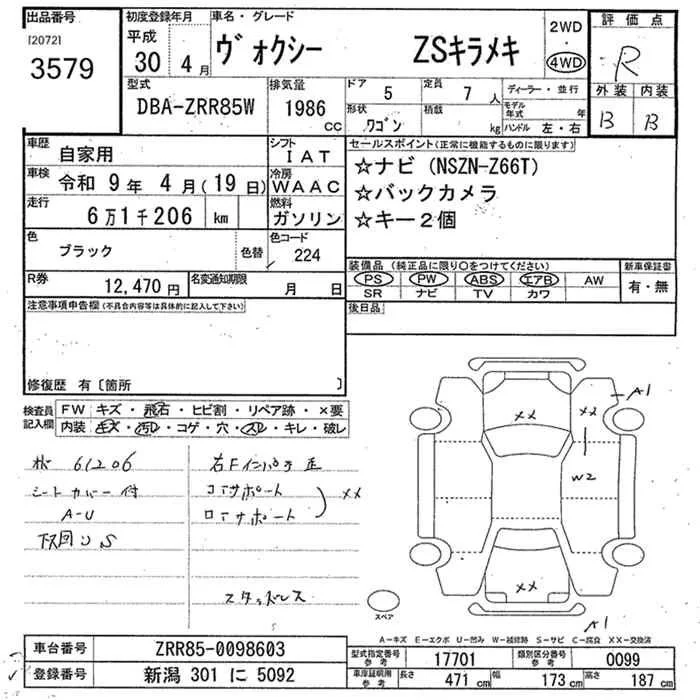 出品番号
[2072]
3579
初度登録年月
平成
30年 4月
車名・グレード
ヴォクシー ZSキラメキ
2WD
・
4WD
評価点
R
外装 内装
B B
型式
DBA-ZRR85W
排気量
1986
CC
ドア
5
定員
7人
形状
ワゴン
積載
kg
ディーラー・並行
モデル年式 年
ハンドル 左・右
車歴
自家用
シフト
IAT
車検
令和 9年 4月(19日)
冷房
WAAC
走行
6万1千206 km
燃料
ガソリン
色
ブラック
色替
色コード
224
R券
12,470円
名変通知期限
月 日
セールスポイント(正常に機能するものに限ります)
☆ナビ(NSZN-Z66T)
☆バックカメラ
☆キー2個
装備品(純正品に限り○をつけてください)
PS PW ABS エアB AW
SR ナビ TV カワ
新車保証書
有・無
後日品
注意事項申告欄(不具合内容等は具体的に記入して下さい)
修復歴 有〔箇所 〕
検査員記入欄
FW キズ・飛石・ヒビ割・リペア跡・×要
内装 キズ・汚レ・コゲ・穴・スレ・キレ・破レ
61206
シートカバー付
A-U
下回り S
右Fインパネ 正
コアサポート
ロアサポート
XX
スタッドレス
A1
XX
XX
W2
XX
A1
スペア
A-キズ E-エクボ U-凹み W-補修跡 S-サビ C-腐食 XX-交換済
車台番号
ZRR85-0098603
登録番号
新潟 301 に 5092
型式指定番号
参考
17701
類別区分番号
参考
0099
車庫証明用
参考
長さ 471cm
幅 173cm
高さ 187cm